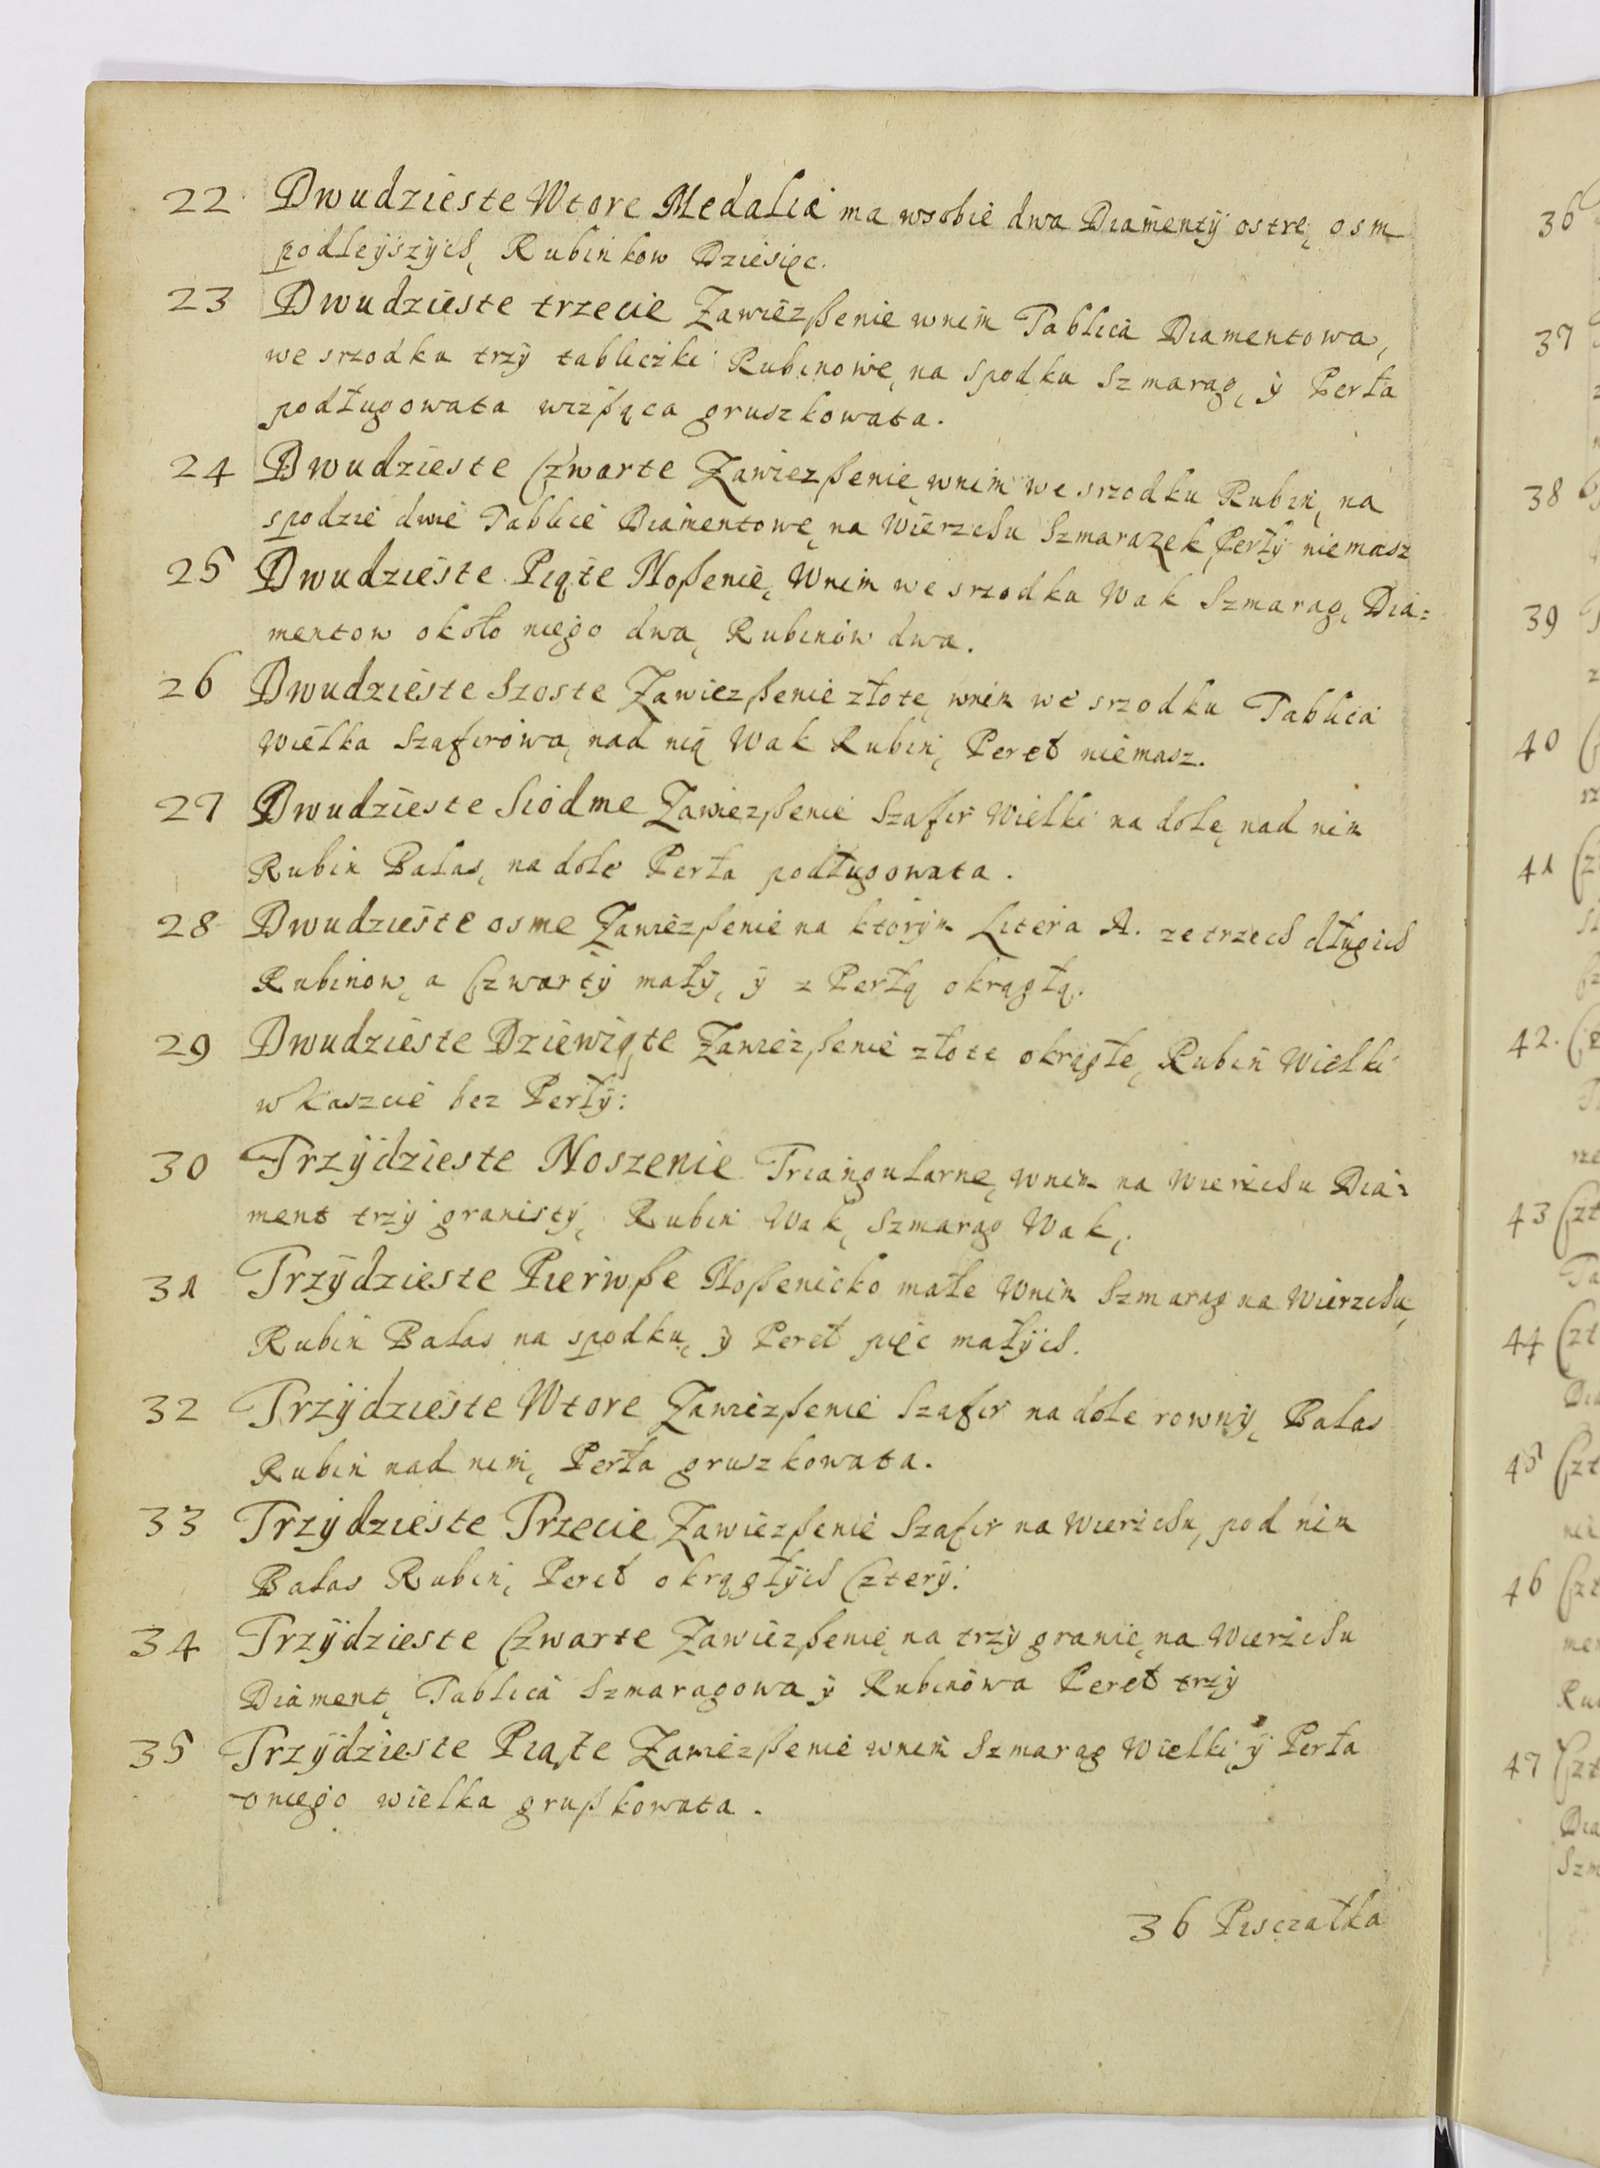 22 Dwudzieste Wtore Medalia ma wsobie dwa Diamenty ostre, osm
podleyszych, Rubinkow Dziesięc.
23 Dwudzieste trzecie Zawiezßenie wnim Tablica Diamentowa,
we srzodku trzy tabliczki Rubinowe, na spodku Szmarag, y Perła
podługowata wizßąca gruszkowata.
24 Dwudzieste Czwarte Zawiezßenie, wnim we srzodku Rubin, na
spodzie dwie Tablice Diamentowe, na Wierzchu Szmarazek Perły niemasz
25 Dwudzieste Piąte Noßenie, Wnim we srzodku Wak Szmarag, Dia=
mentow około niego dwa, Rubinow dwa.
26 Dwudzieste Szoste Zawiezßenie złote, wnim we srzodku Tablica
Wielka Szafirowa, nad nią Wak Rubin, Pereł niemasz.
27 Dwudzieste Siodme Zawiezßenie Szafir Wielki na dole, nad nim
Rubin Balas, na dole Perła podługowata.
28 Dwudzieste osme Zawiezßenie na ktorym Litera A. ze trzech długich
Rubinow, a Czwarty mały, y z Perłą okrągłą.
29 Dwudzieste Dziewiąte Zawiezßenie złote okrągłe, Rubin Wielki
w kaszcie bez Perły:
30 Trzydzieste Noszenie Triangularne, wnim na wierzchu Dia=
ment trzy granisty, Rubin Wak, Szmarag Wak,.
31 Trzydzieste Pierwße Noßenicko małe Wnim Szmarag na Wierzchu,
Rubin Balas na spodku, y Pereł pięc małych.
32 Trzydzieste Wtore Zawiezßenie Szafir na dole rowny, Balas
Rubin nad nim, Perła gruszkowata.
33 Trzydzieste Trzecie Zawiezßenie Szafir na Wierzchu, pod nim
Balas Rubin, Pereł okrągłych Cztery.
34 Trzydzieste Czwarte Zawiezßenie, na trzy granie, na Wierzchu
Diament, Tablica Szmaragowa y Rubinowa Pereł trzy
35 Trzydzieste Piąte Zawiezßenie wnim Szmarag Wielki, y Perła
oniego wielka grußkowata.
36 Pisczałka
36
37
38
39
40
41
42.
43
44
45
46
47